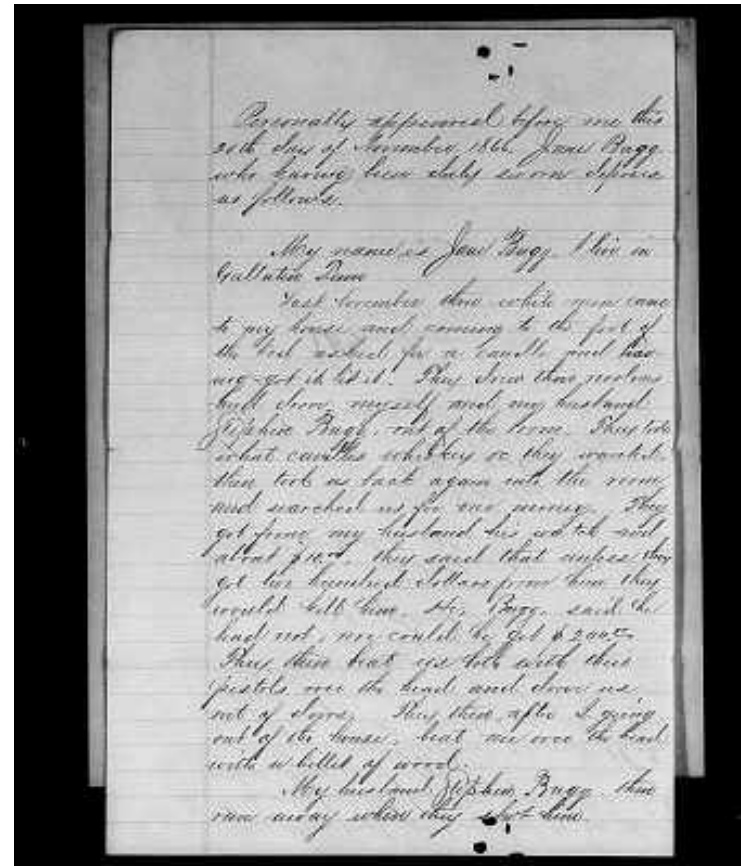 Personally appeared before me this
20th day of November 1866 Jane Bugg
who having been duly sworn deposes
as follows.
My name is Jane Bugg. I live in
Gallatin Tenn
Last November three white men came
to my house and coming to the foot of
the bed asked for a candle and hav-
ing got it lit it. They drew their
and drove myself and my husband
Stephen Bugg, out of the room. They took
what candles whiskey &c they wanted
then took us back again into the room
and searched us for our money. They
got from my husband his watch and
about $10.00. they said that unless they
got two hundred dollars from him they
would kill him. He, Bugg, said he
had not, nor could he get $200.00
They then beat us both with their
pistols over the head and drove us
out of doors. They then after I going
out of the house, beat me over the head
with a billet of wood.
My husband Stephen Bugg then
ran away when they shot him.